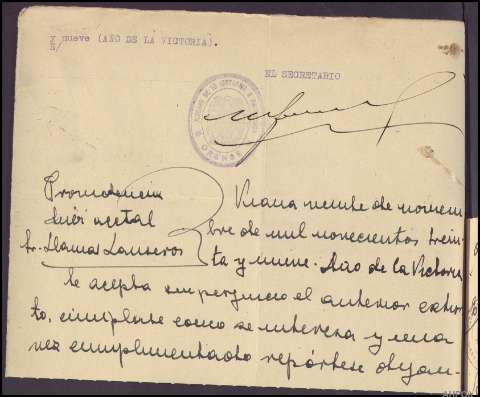 y nueve (AÑO DE LA VICTORIA).
EL SECRETARIO
ORENSE
Providencia
Juez acctal
Sr. Llama Lanseros
Viana veinte de noviem
bre de mil novecientos trein-
ta y nueve. Año de la Victoria
Se acepta sin perjuicio el anterior exhor-
to, cúmplase como se interesa y una
vez cumplimentado repórtese